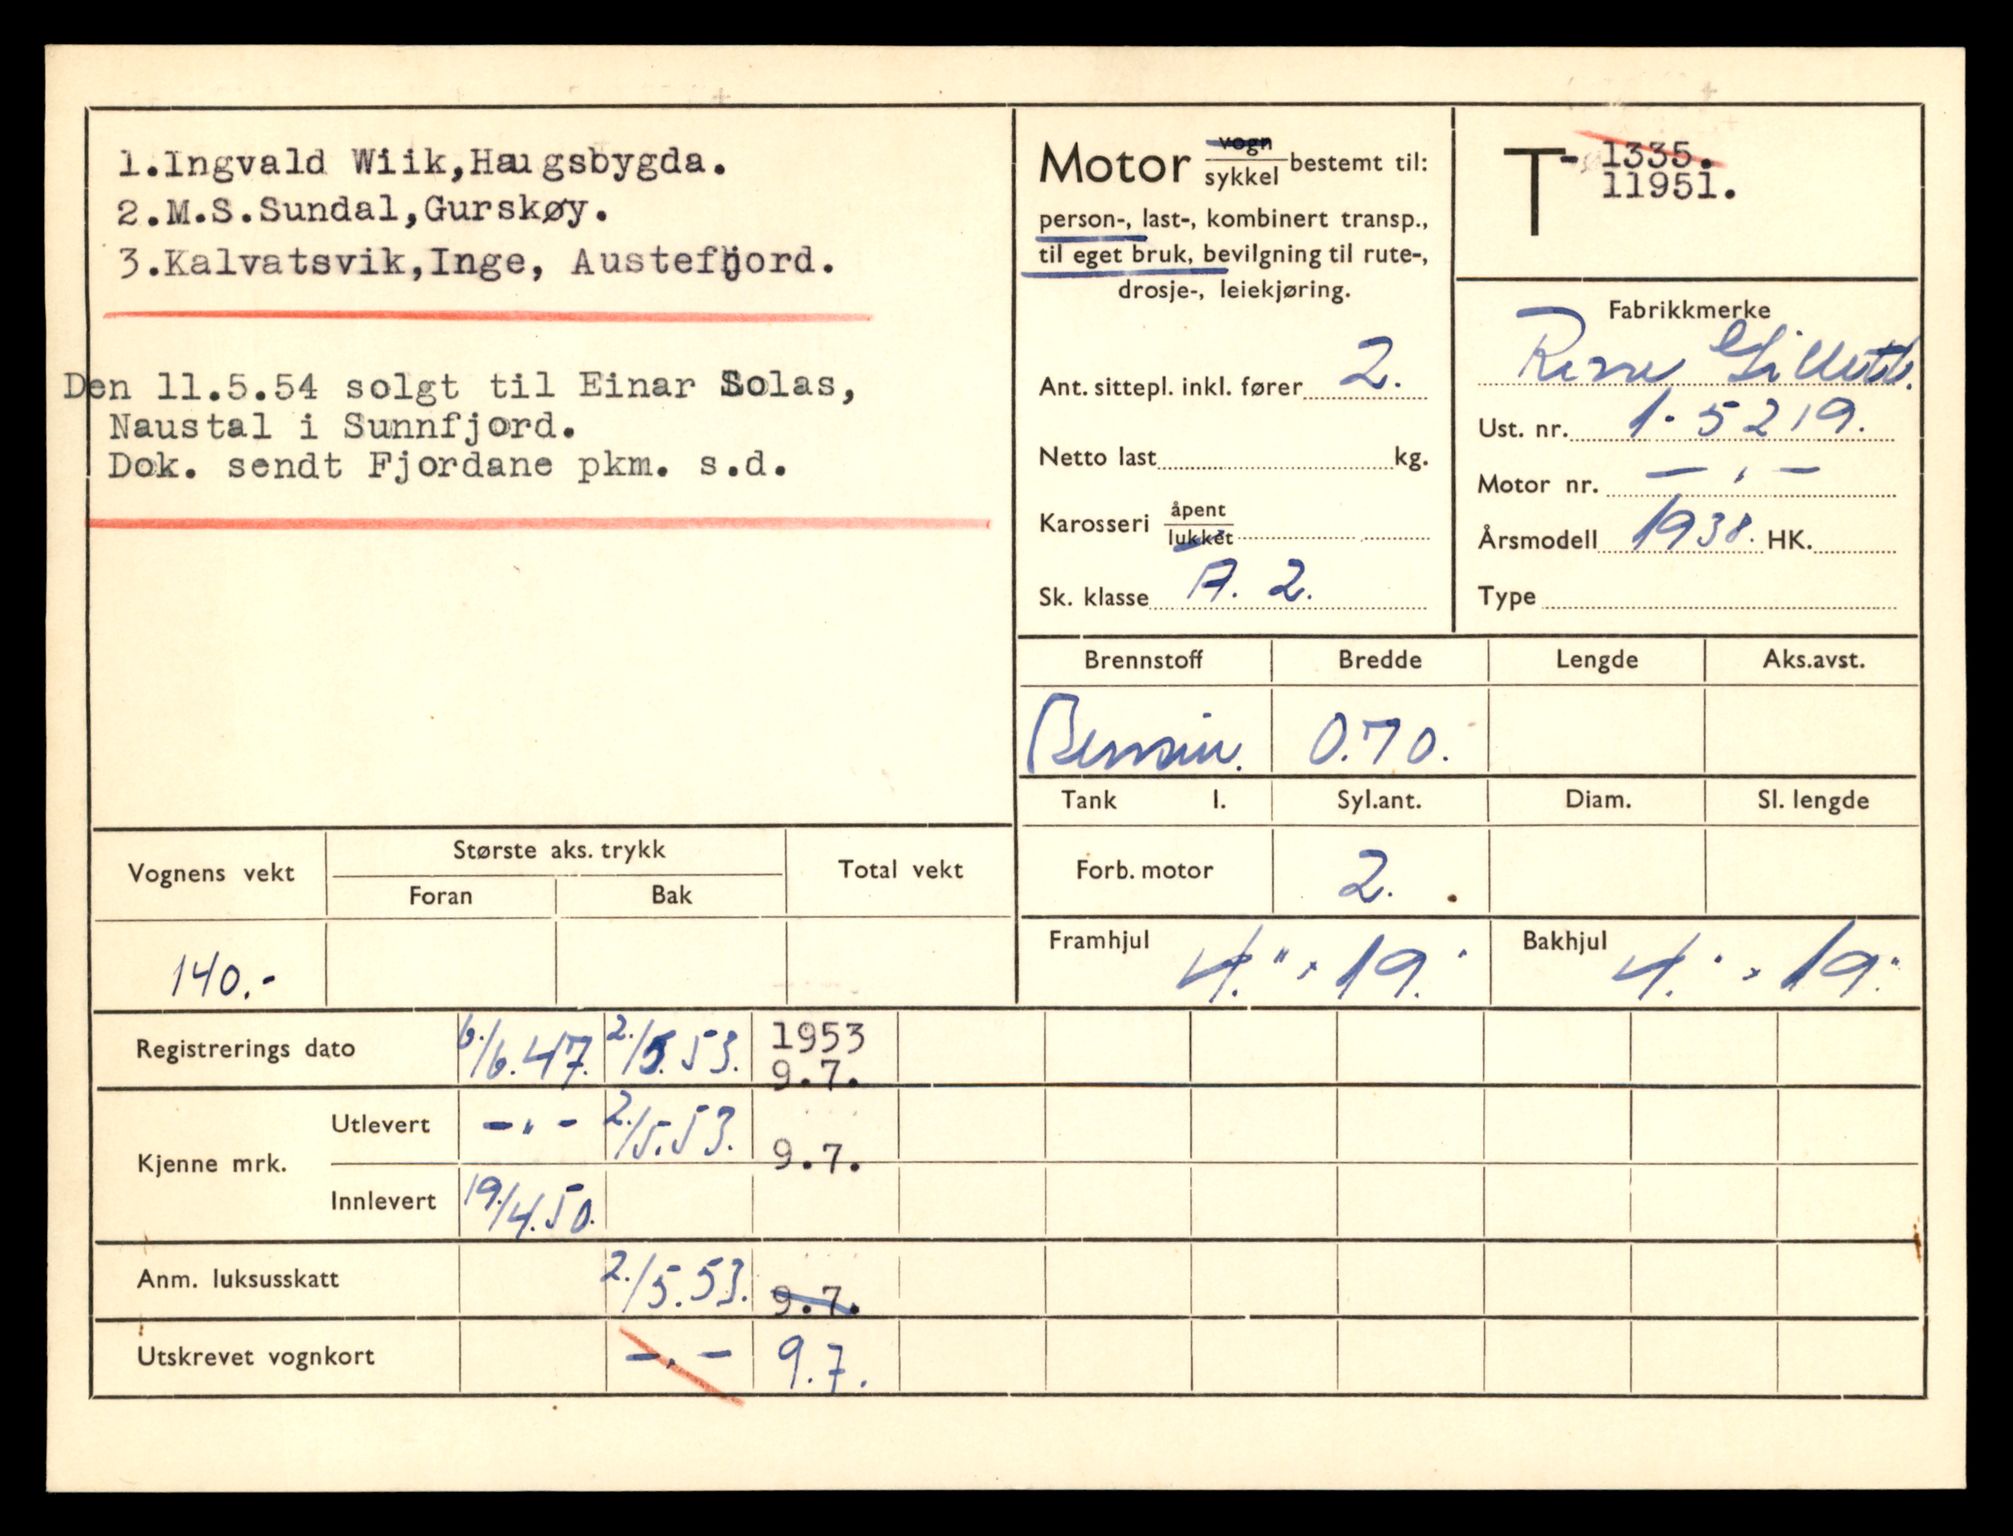 1.Ingvald Wiik,Haugsbygda.
2.M.S.Sundal,Gurskøy.
3.Kalvatsvik,Inge, Austefjord.
Den 11.5.54 solgt til Einar Solas,
Naustal i Sunnfjord.
Dok. sendt Fjordane pkm. s.d.
Motor vogn/sykkel bestemt til:
person-, last-, kombinert transp.,
til eget bruk, bevilgning til rute-,
drosje-, leiekjøring.
Ant. sittepl. inkl. fører 2.
Netto last kg.
Karosseri åpent/lukket
Sk. klasse A. 2.
T- 1335.
11951.
Fabrikkmerke
Rene Gillette.
Ust. nr. 1.5219.
Motor nr. — " —
Årsmodell 1938. HK.
Type
Brennstoff Bredde Lengde Aks.avst.
Bensin. 0.70.
Tank l. Syl.ant. Diam. Sl. lengde
Forb. motor 2.
Framhjul 4." × 19." Bakhjul 4." × 19."
Vognens vekt Største aks. trykk Total vekt
Foran Bak
140.-
Registrerings dato 6./6.47. 2./5.53. 1953
9.7.
Kjenne mrk. Utlevert — " — 2./5.53. 9.7.
Innlevert 19./4.50.
Anm. luksusskatt 2./5.53. 9.7.
Utskrevet vognkort — " — 9.7.